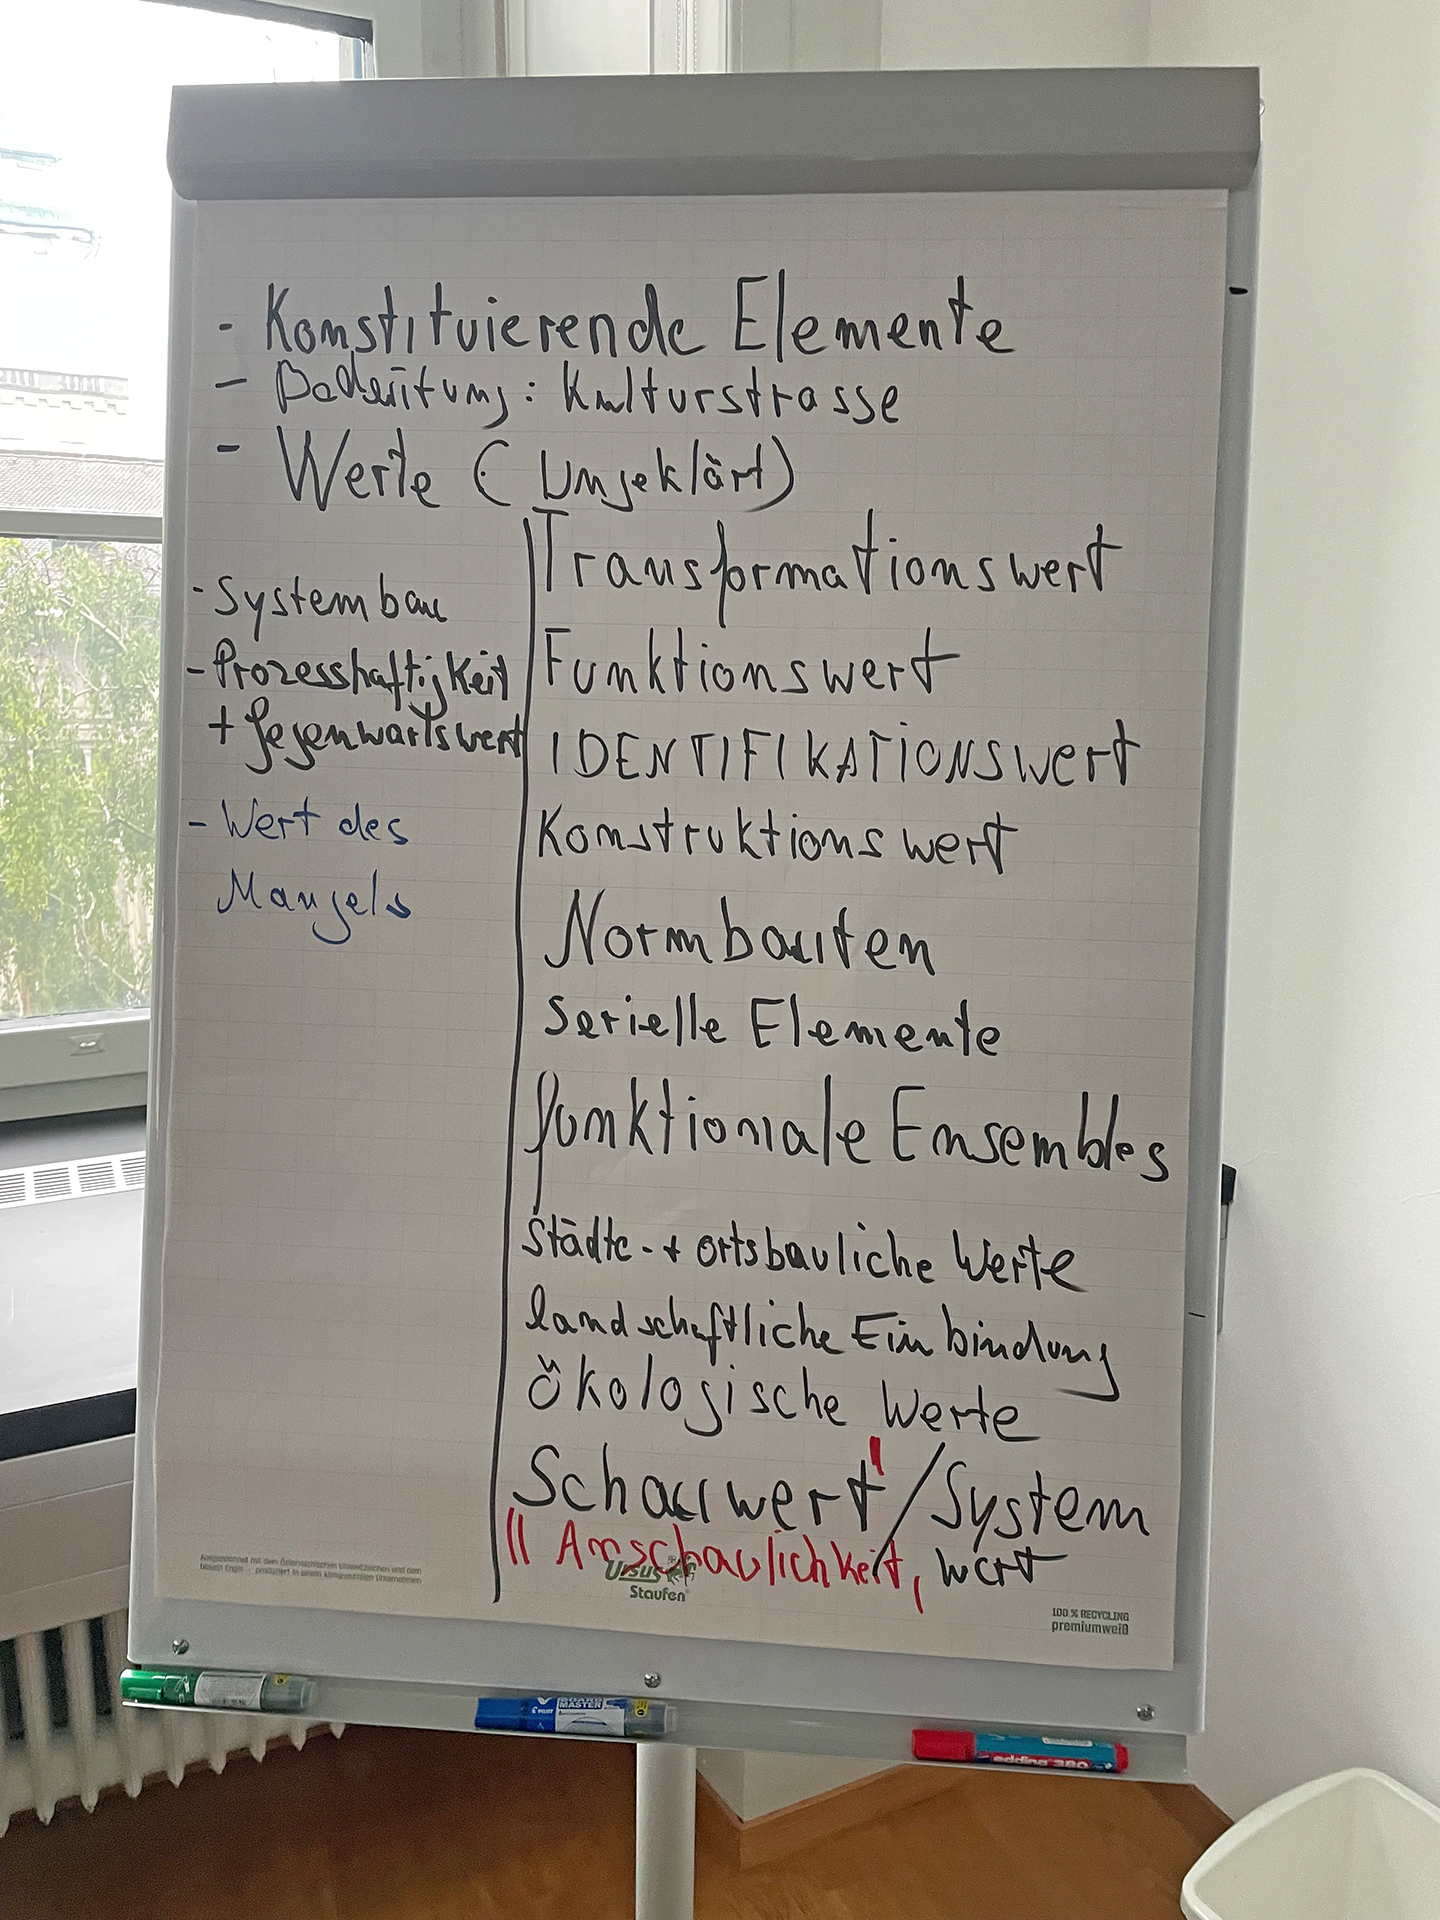 - Konstituierende Elemente
- Bedeutung: Kulturstrasse
- Werte (Ungeklärt)
- Systembau
- Prozesshaftigkeit
+ Gegenwartswert
- Wert des
Mangels
Transformationswert
Funktionswert
IDENTIFIKATIONSwert
Konstruktionswert
Normbauten
Serielle Elemente
funktionale Ensembles
Städte- + ortsbauliche Werte
landschaftliche Einbindung
ökologische Werte
Schauwert / System
" Anschaulichkeit, wert
Ausgezeichnet mit dem Österreichischen Umweltzeichen und dem
blauen Engel - produziert in einem klimaneutralen Unternehmen
Ursus
Staufen
100 % RECYCLING
premiumweiß
BOARD
MASTER
PILOT
edding 380